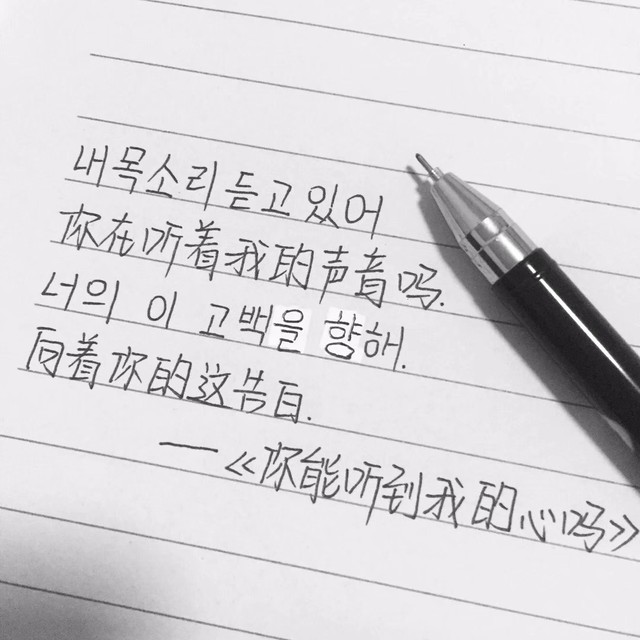 내목소리 듣고 있어
你在听着我的声音吗.
너의 이 고백을 향해.
向着你的这告白.
—《你能听到我的心吗》